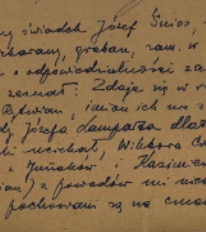 świadek Józef Gnios,
karany, gr.kan., zam. w
o odpowiedzialności za
zeznał: Zdaje się w r
Rytwian, imion ich nie z
Józefa Lamparta dla
uciekał, Wiktora
z Juńaków i Kazimie
z powodów mi nie
pochowani są na cmen